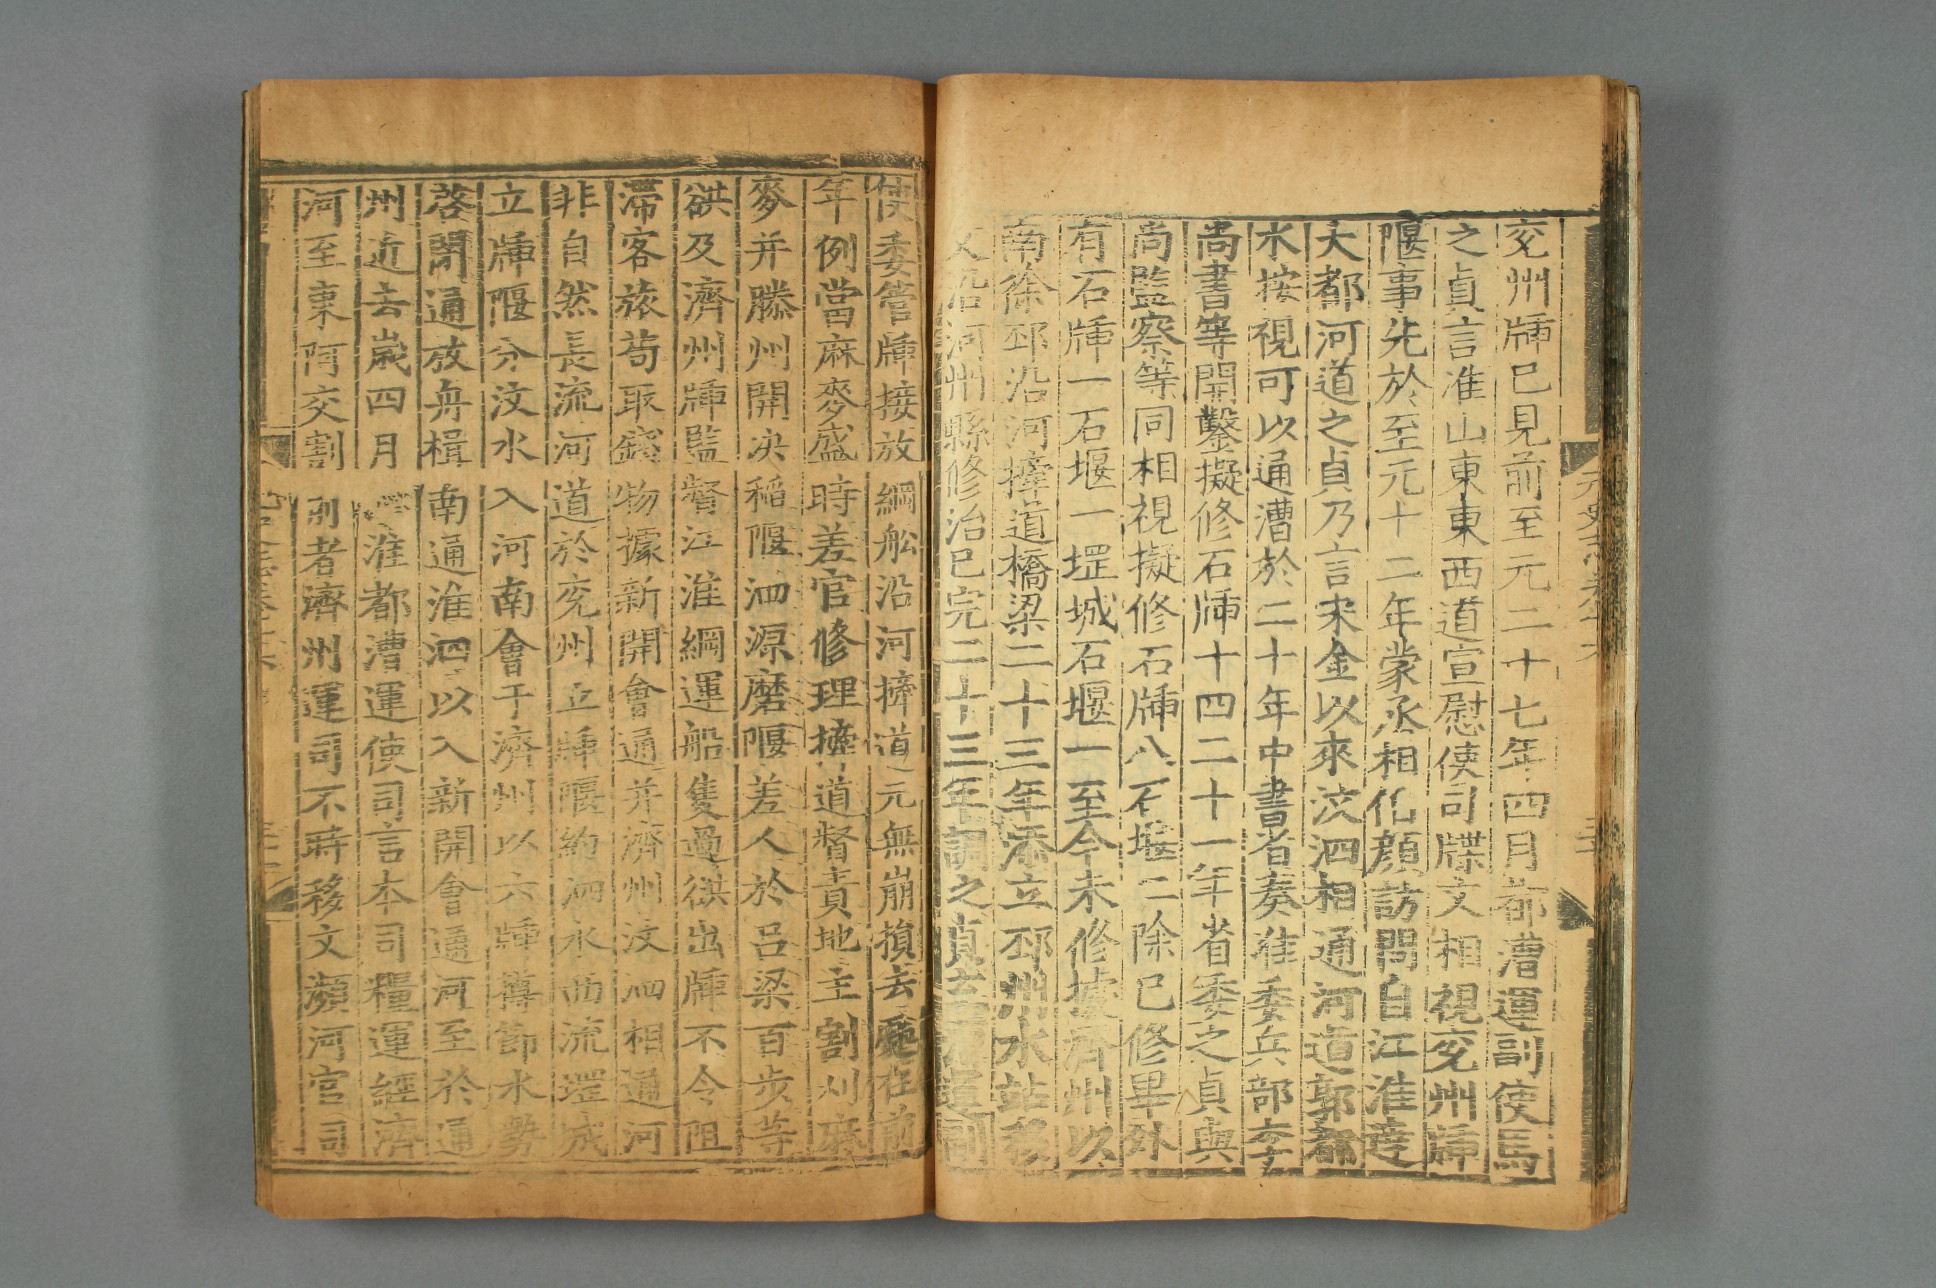 兗州牐已見前至元二十七年四月都漕運副使馬
之貞言淮山東東西道宣慰使司牒文相視兗州牐
堰事先於至元十二年蒙丞相伯顏訪問自江淮達
大都河道之貞乃言宋金以來汶泗相通河道郭都
水按視可以通漕於二十年中書省奏准委兵部李
尚書等開鑿擬修石牐十四二十一年省委之貞與
尚監察等同相視擬修石牐八石堰二除已修畢外
有石牐一石堰一堽城石堰一至今未修據濟州以
南徐邳沿河擁道橋梁二十三年添立邳州水站移
文沿河州縣修治已完二十三年調之貞充漕運副
使委管牐接放綱舩沿河擁道元無崩損去處在前
年例當麻麥盛時差官修理擁道督責地主割刈麻
麥并滕州開決稻堰泗源磨堰差人於呂梁百步等
谼及濟州牐監督江淮綱運船隻過谼出牐不令阻
滯客旅苟取錢物據新開會通并濟州汶泗相通河
非自然長流河道於兗州立牐堰約泗水西流堽城
立牐堰分汶水入河南會于濟州以六牐撙節水勢
啓閉通放舟楫南通淮泗以入新開會通河至於通
州近去歲四月 淮都漕運使司言本司糧運經濟
河至東阿交割前者濟州運司不時移文瀕河官司